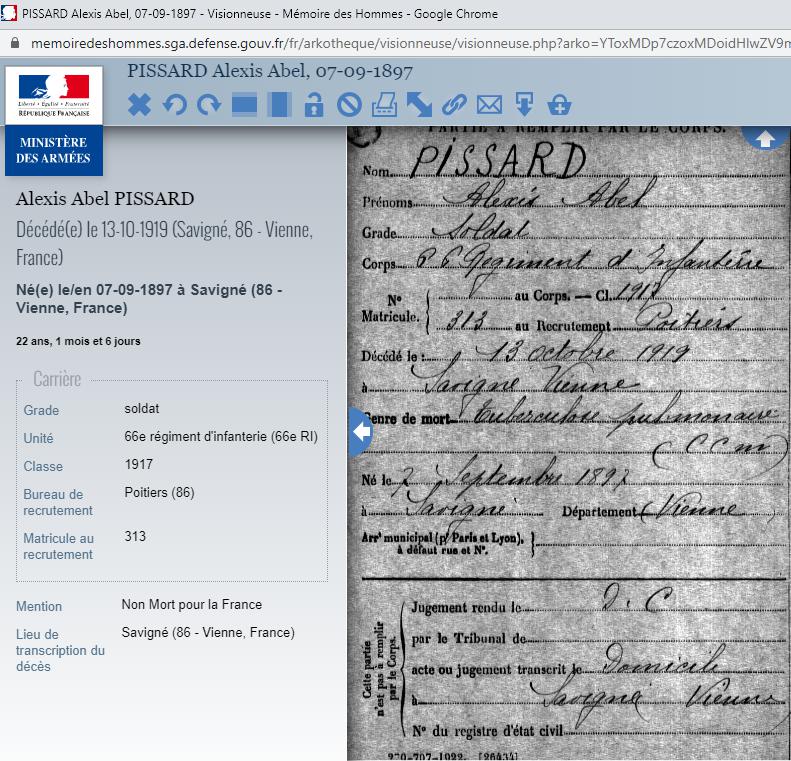 PISSARD Alexis Abel, 07-09-1897 - Visionneuse - Mémoire des Hommes - Google Chrome
memoiredeshommes.sga.defense.gouv.fr/fr/arkotheque/visionneuse/visionneuse.php?arko=YToxMDp7czoxMDoidHlwZV9m
PISSARD Alexis Abel, 07-09-1897
Liberté • Égalité • Fraternité
RÉPUBLIQUE FRANÇAISE
MINISTÈRE
DES ARMÉES
Alexis Abel PISSARD
Décédé(e) le 13-10-1919 (Savigné, 86 - Vienne,
France)
Né(e) le/en 07-09-1897 à Savigné (86 -
Vienne, France)
22 ans, 1 mois et 6 jours
Carrière
Grade soldat
Unité 66e régiment d'infanterie (66e RI)
Classe 1917
Bureau de recrutement Poitiers (86)
Matricule au recrutement 313
Mention Non Mort pour la France
Lieu de transcription du décès Savigné (86 - Vienne, France)
PARTIE A REMPLIR PAR LE CORPS.
Nom PISSARD
Prénoms Alexis Abel
Grade Soldat
Corps 66 Régiment d'Infanterie
N° Matricule. au Corps. — Cl. 1917
313 au Recrutement Poitiers
Décédé le : 13 octobre 1919
à Savigné Vienne
Genre de mort Tuberculose pulmonaire
(C C m)
Né le 7 Septembre 1897
à Savigné Département Vienne
Arrt municipal (pr Paris et Lyon),
à défaut rue et N°.
Cette partie
n'est pas à remplir
par le Corps.
Jugement rendu le D. C
par le Tribunal de
acte ou jugement transcrit le Domicile
à Savigné Vienne
N° du registre d'état civil
270-707-1922. [26434]